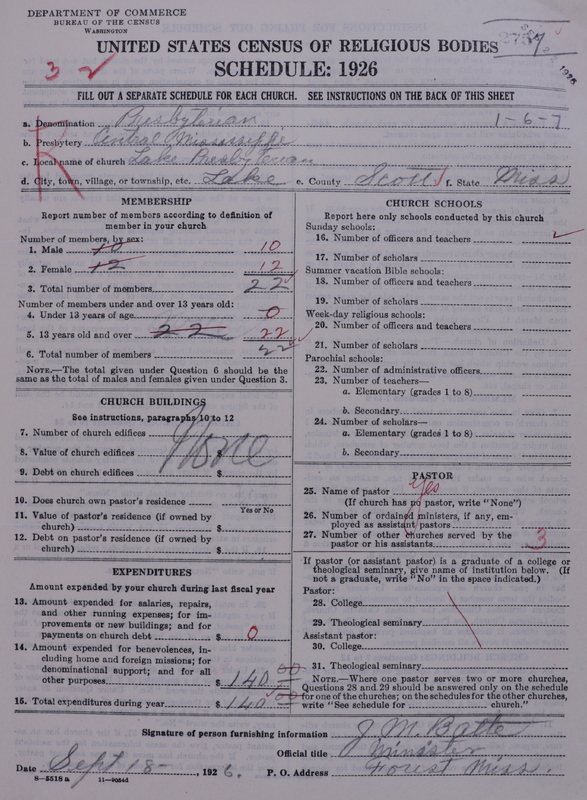 DEPARTMENT OF COMMERCE
BUREAU OF THE CENSUS
WASHINGTON
2757
UNITED STATES CENSUS OF RELIGIOUS BODIES
SCHEDULE: 1926
3
FILL OUT A SEPARATE SCHEDULE FOR EACH CHURCH. SEE INSTRUCTIONS ON THE BACK OF THIS SHEET
R
a. Denomination Presbyterian 1-6-7
b. Presbytery Central Mississippi
c. Local name of church Lake Presbyterian
d. City, town, village, or township, etc. Lake e. County Scott f. State Miss
MEMBERSHIP
Report number of members according to definition of
member in your church
Number of members, by sex:
1. Male 10 10
2. Female 12 12
3. Total number of members 22
Number of members under and over 13 years old:
4. Under 13 years of age 0
5. 13 years old and over 22 22
6. Total number of members 22
NOTE.—The total given under Question 6 should be the
same as the total of males and females given under Question 3.
CHURCH BUILDINGS
See instructions, paragraphs 10 to 12
7. Number of church edifices None
8. Value of church edifices $
9. Debt on church edifices $
10. Does church own pastor's residence
Yes or No
11. Value of pastor's residence (if owned by
church) $
12. Debt on pastor's residence (if owned by
church) $
EXPENDITURES
Amount expended by your church during last fiscal year
13. Amount expended for salaries, repairs,
and other running expenses; for im-
provements or new buildings; and for
payments on church debt $ 0
14. Amount expended for benevolences, in-
cluding home and foreign missions; for
denominational support; and for all
other purposes $ 140 00
15. Total expenditures during year $ 140 00
CHURCH SCHOOLS
Report here only schools conducted by this church
Sunday schools:
16. Number of officers and teachers
17. Number of scholars
Summer vacation Bible schools:
18. Number of officers and teachers
19. Number of scholars
Week-day religious schools:
20. Number of officers and teachers
21. Number of scholars
Parochial schools:
22. Number of administrative officers
23. Number of teachers—
a. Elementary (grades 1 to 8)
b. Secondary
24. Number of scholars—
a. Elementary (grades 1 to 8)
b. Secondary
PASTOR
25. Name of pastor Yes
(If church has no pastor, write "None")
26. Number of ordained ministers, if any, em-
ployed as assistant pastors
27. Number of other churches served by the
pastor or his assistants 3
If pastor (or assistant pastor) is a graduate of a college or
theological seminary, give name of institution below. (If
not a graduate, write "No" in the space indicated.)
Pastor:
28. College
29. Theological seminary
Assistant pastor:
30. College
31. Theological seminary
NOTE.—Where one pastor serves two or more churches,
Questions 28 and 29 should be answered only on the schedule
for one of the churches; on the schedules for the other churches,
write "See schedule for church."
Signature of person furnishing information J. M.
Official title Minister
Date Sept 18 1926. P. O. Address Forest Miss.
8-5518 a 11-9054d